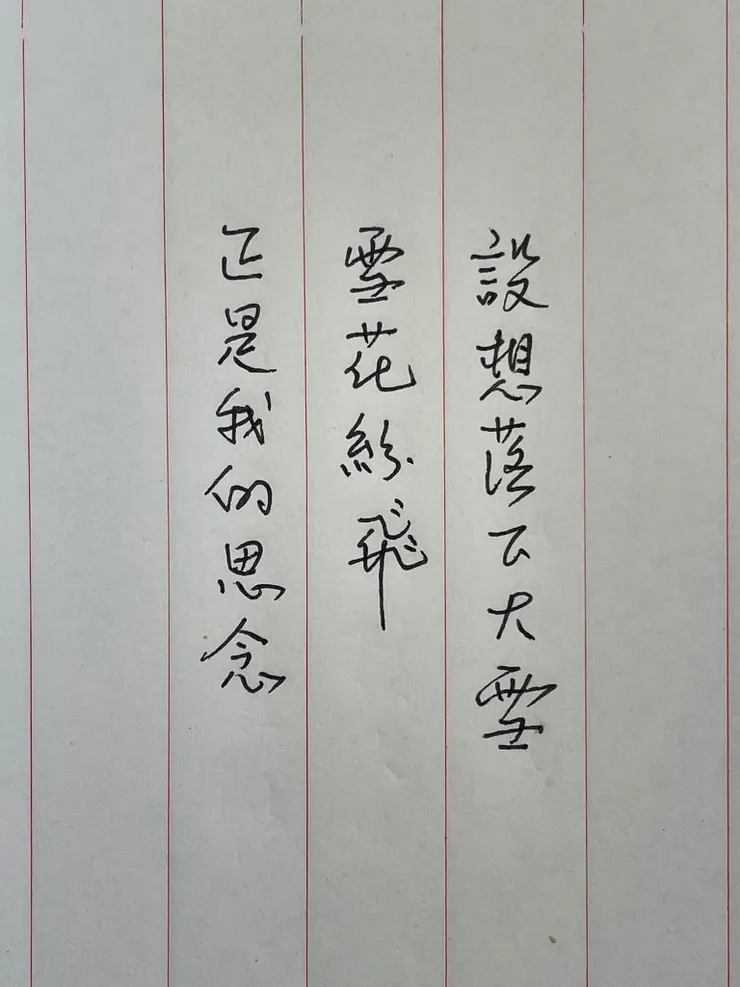 設想落下大雪
雪花紛飛
正是我的思念